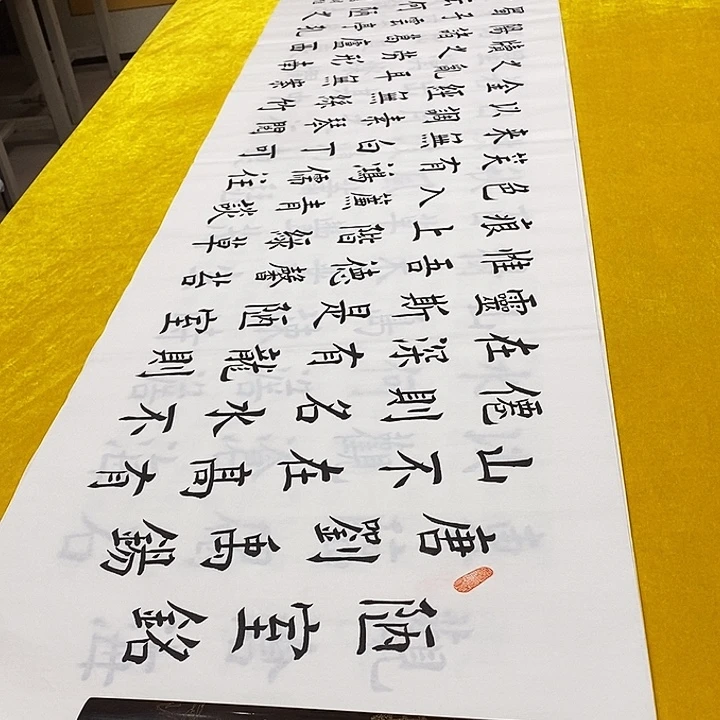 陋室銘
唐劉禹錫
山不在高有
僊則名水不
在深有龍則
靈斯是陋室
惟吾德馨苔
痕上階綠草
色入簾青談
笑有鴻儒往
來無白丁可
以調素琴閱
金經無絲竹
之亂耳無案
牘之勞形南
陽諸葛廬西
蜀子雲亭孔
云何陋之